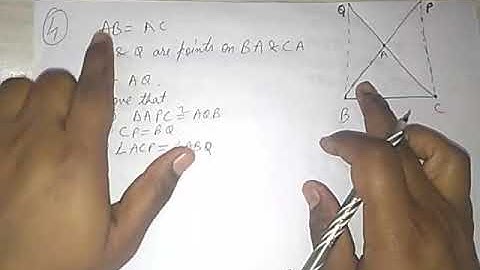 4)
AB = AC
& Q are points on BA & CA
= AQ.
ove that
ΔAPC ≅ AQB
CP = BQ
∠ACP = ∠ABQ
Q P
A
B C